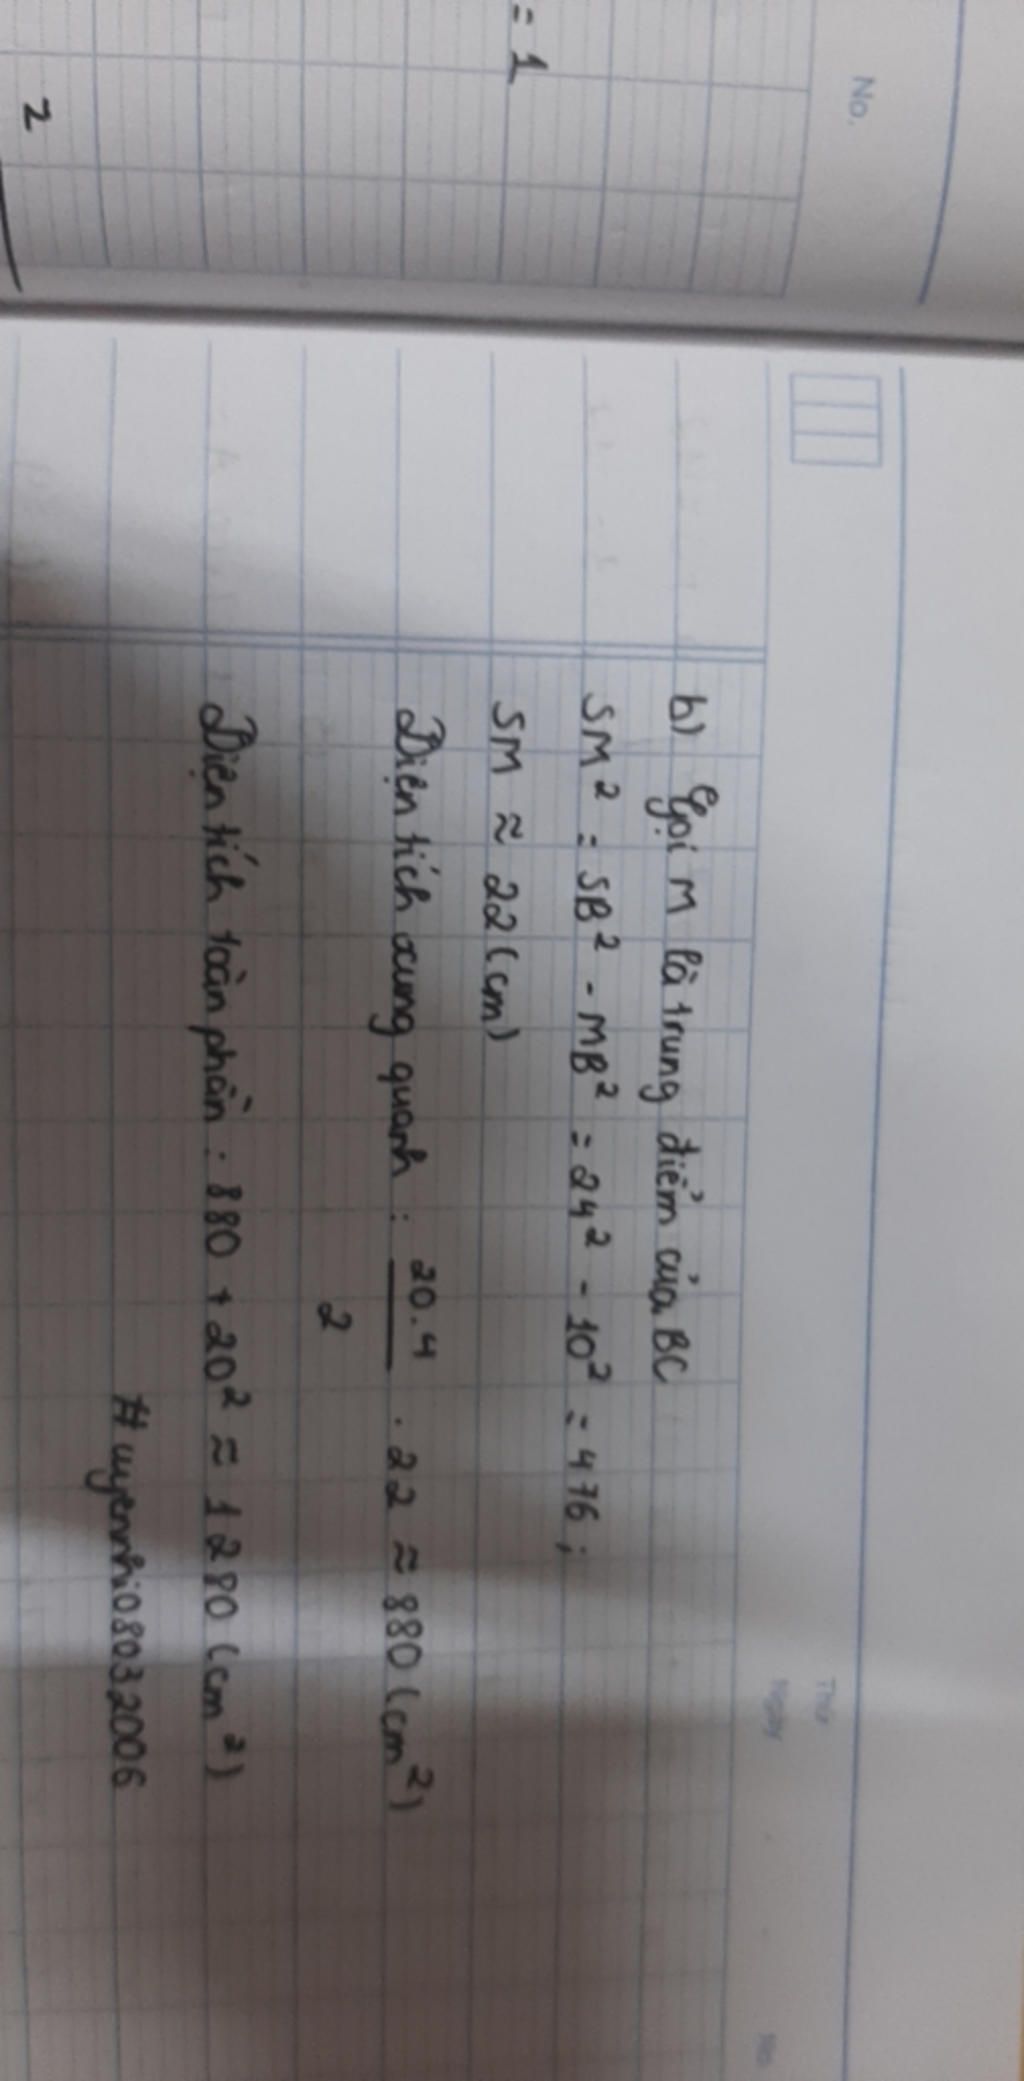 No.
= 1
2
Thứ
Ngày
No.
b) Gọi M là trung điểm của BC
SM² = SB² - MB² = 24² - 10² = 476;
SM ≈ 22 (cm)
Diện tích xung quanh : 20.4 / 2 . 22 ≈ 880 (cm²)
Diện tích toàn phần : 880 + 20² ≈ 1280 (cm²)
# uyennhi08032006